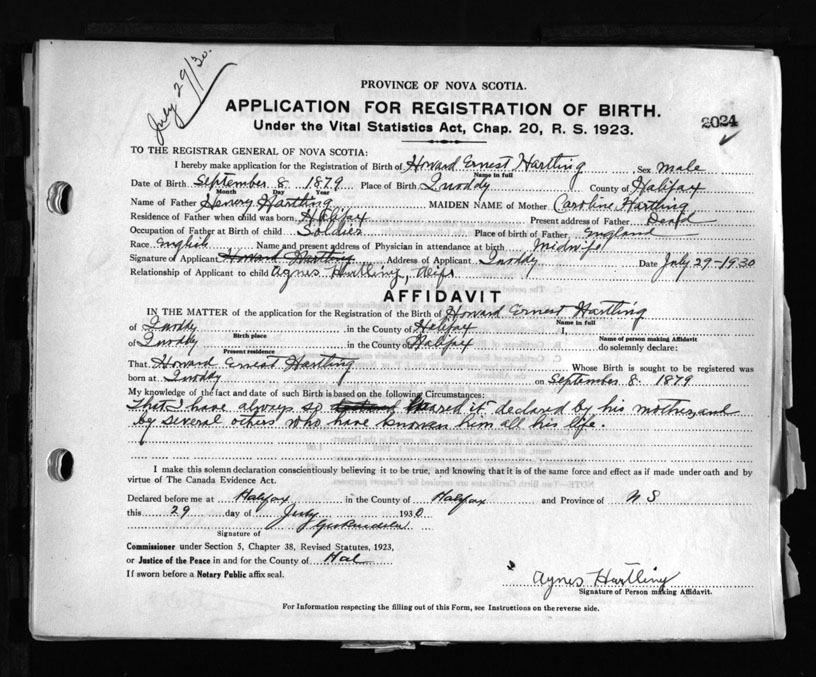 July 29/30.
PROVINCE OF NOVA SCOTIA.
APPLICATION FOR REGISTRATION OF BIRTH.
2024
Under the Vital Statistics Act, Chap. 20, R. S. 1923.
TO THE REGISTRAR GENERAL OF NOVA SCOTIA:
I hereby make application for the Registration of Birth of Howard Ernest Hartling Sex male
Name in full
Date of Birth September 8 1879 Place of Birth County of Halifax
Month Day Year
Name of Father Henry Hartling MAIDEN NAME of Mother Caroline Hartling
Residence of Father when child was born Halifax Present address of Father Dead
Occupation of Father at Birth of child Soldier Place of birth of Father England
Race English Name and present address of Physician in attendance at birth Midwife
Signature of Applicant Howard Hartling Address of Applicant Date July 29-1930
Relationship of Applicant to child Agnes Hartling, Wife
AFFIDAVIT
IN THE MATTER of the application for the Registration of the Birth of Howard Ernest Hartling
Name in full
of in the County of Halifax I,
Birth place Name of person making Affidavit
of in the County of Halifax do solemnly declare:
Present residence
That Howard Ernest Hartling Whose Birth is sought to be registered was
born at on September 8 1879
My knowledge of the fact and date of such Birth is based on the following Circumstances:
That I have always so heared it declared by his mother, and
by several others who have known him all his life.
I make this solemn declaration conscientiously believing it to be true, and knowing that it is of the same force and effect as if made under oath and by
virtue of The Canada Evidence Act.
Declared before me at Halifax in the County of Halifax and Province of N S
this 29 day of July 1930
Signature of
Commissioner under Section 5, Chapter 38, Revised Statutes, 1923,
or Justice of the Peace in and for the County of Hal
If sworn before a Notary Public affix seal.
Agnes Hartling
Signature of Person making Affidavit.
For Information respecting the filling out of this Form, see Instructions on the reverse side.